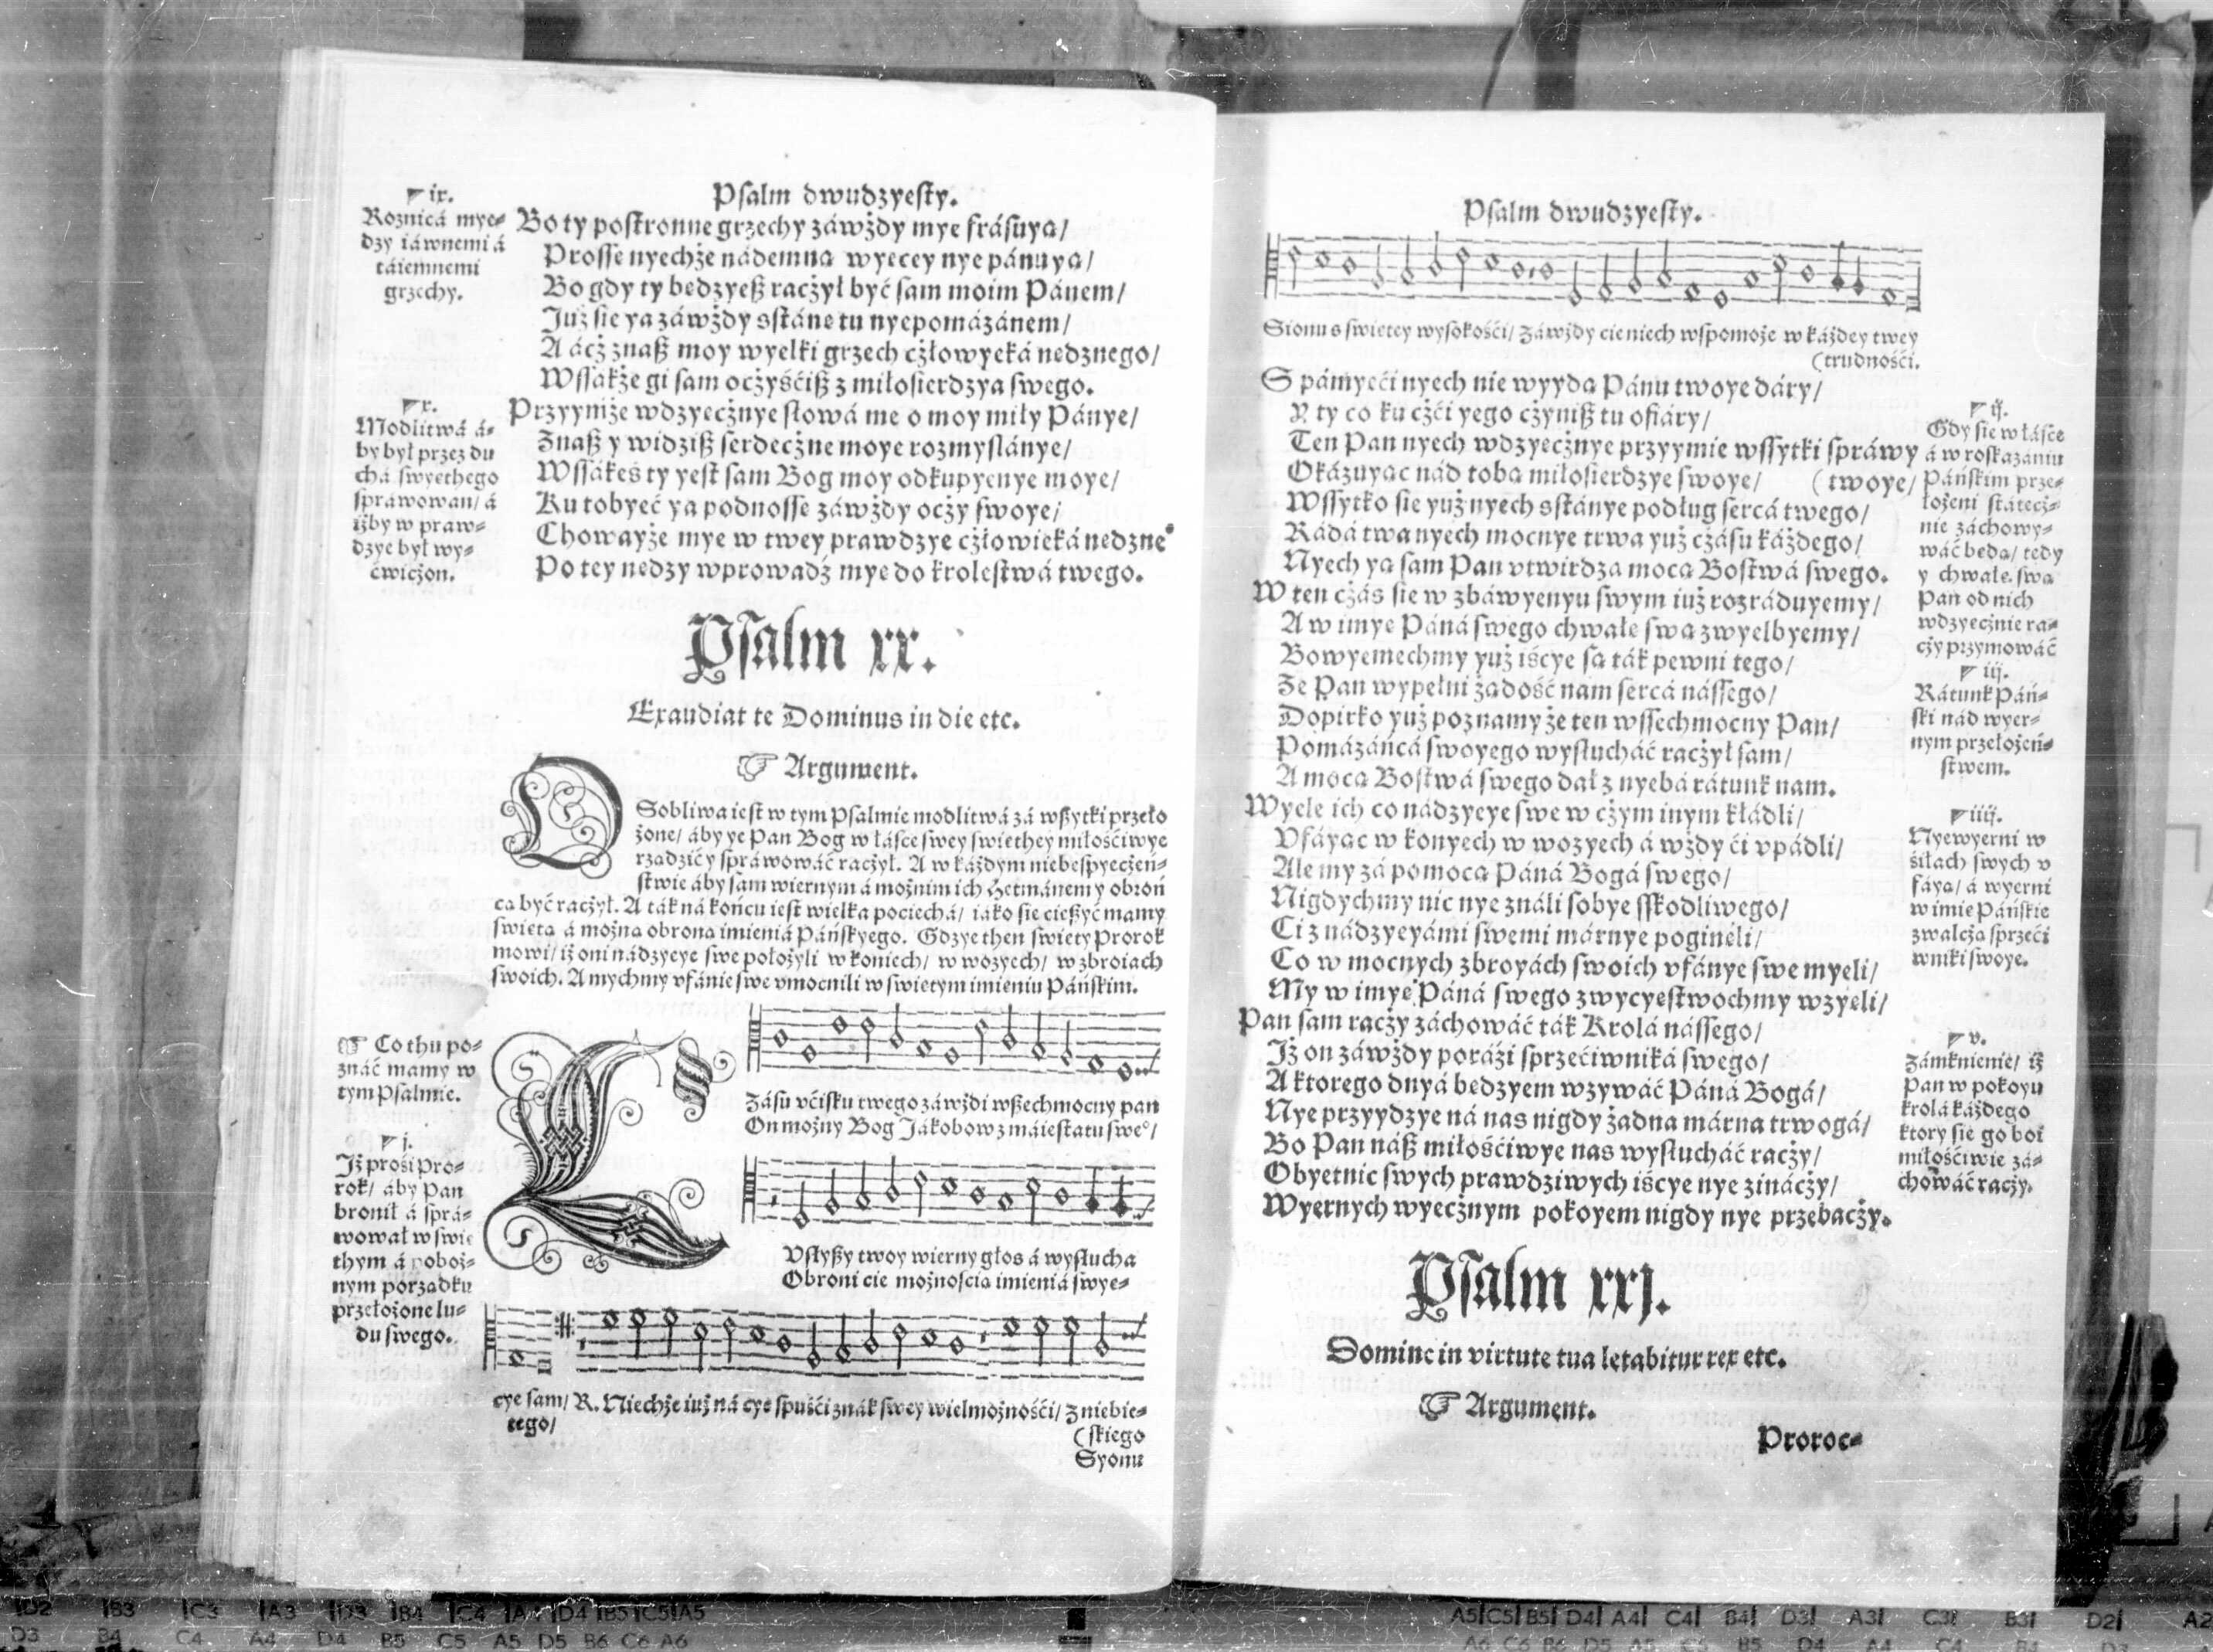 Psalm dwudzyesty.
▼ ix.
Roznicá mye⸗
dzy iáwnemi á
táiemnemi
grzechy.
Bo ty postronne grzechy záwżdy mye frásuya/
Prosse nyechże nádemna wyecey nye pánuya/
Bo gdy ty bedzyeß racżył być sam moim Pánem/
Już sie ya záwżdy sstáne tu nyepomázánem/
A ácż znaß moy wyelki grzech cżłowyeká nedznego/
Wssákże gi sam ocżyśćiß z miłosierdzya swego.
▼ x.
Modlitwá á⸗
by był przez du
chá swyethego
spráwowan/ á
iżby w praw⸗
dzye był wy⸗
ćwicżon.
Przyymiże wdzyecżnye słowá me o moy miły Pánye/
Znaß y widziß serdecżne moye rozmyslánye/
Wssákeś ty yest sam Bog moy odkupyenye moye/
Ku tobyeć ya podnosse záwżdy ocży swoye/
Chowayże mye w twey prawdzye cżłowieká nedzne°
Po tey nedzy wprowadź mye do krolestwá twego.
Psalm xx.
Exaudiat te Dominus in die etc.
☞ Argument.
OSobliwa iest w tym Psalmie modlitwá zá wßytki przeło
żone/ áby ye Pan Bog w łásce swey swiethey miłośćiwye
rządzić y spráwowáć racżył. A w káżdym niebespyecżeń⸗
stwie áby sam wiernym á możnim ich Hetmánem y obroń
ca być racżył. A ták ná końcu iest wielka pociechá/ iáko sie cießyć mamy
swieta á można obrona imieniá Páńskyego. Gdzye then swiety Prorok
mowi/ iż oni nádzyeye swe położyli w koniech/ w wozyech/ w zbroiach
swoich. A mychmy vfánie swe vmocnili w swietym imieniu Páńskim.
☞ Co thu po⸗
znáć mamy w
tym Psalmie.
▼ j.
Iż prośi Pro⸗
rok/ áby Pan
bronił á sprá⸗
wował w swie
thym á poboż⸗
nym porzadku
przełożone lu⸗
du swego.
CZásu vćisku twego záwżdi wßechmocny pan
On możny Bog Jákobow z máiestatu swe°/
Vsłyßy twoy wierny głos á wysłucha
Obroni cie możnoscia imieniá swye⸗
cye sam/ R. Niechże iuż ná cye spuśći znák swey wielmożnośći/ Z niebie⸗
tego/
(skiego
Syonu
Psalm dwudzyesty.
Sionu s swietey wysokośći/ Záwżdy cie niech wspomoże w káżdey twey
(trudnośći.
S pámyeći nyech nie wyyda Pánu twoye dáry/
Y ty co ku cżći yego cżyniß tu ofiáry/
Ten Pan nyech wdzyecżnye przyymie wssytki spráwy
Okázuyac nád toba miłosierdzye swoye/ (twoye/
Wssytko sie yuż nyech sstánye podług sercá twego/
Rádá twa nyech mocnye trwa yuż cżásu káżdego/
Nyech ya sam Pan vtwirdza moca Bostwá swego.
▼ ij.
Gdy sie w łásce
á w roskazániu
Páńskim prze⸗
łożeni státecż⸗
nie záchowy⸗
wáć beda/ tedy
y chwałe swa
Pan od nich
wdzyecżnie ra⸗
cży przymowáć
W ten cżás sie w zbáwyenyu swym iuż rozráduyemy/
A w imye Páná swego chwałe swa zwyelbyemy/
Bo wyemechmy yuż iśćye sa ták pewni tego/
Ze Pan wypełni żadość nam sercá nássego/
Dopirko yuż poznamy że ten wssechmocny Pan/
Pomázáńcá swoyego wysłucháć racżył sam/
A moca Bostwá swego dał z nyebá rátunk nam.
▼ iij.
Rátunk Páń⸗
ski nád wyer⸗
nym przełożeń⸗
stwem.
Wyele ich co nádzyeye swe w cżym inym kłádli/
Vfáyac w konyech w wozyech á wżdy ći vpádli/
Ale my zá pomoca Páná Bogá swego/
Nigdychmy nic nye ználi sobye sskodliwego/
Ci z nádzyeyámi swemi márnye poginéli/
Co w mocnych zbroyách swoich vfánye swe myeli/
My w imye Páná swego zwycyestwochmy wzyeli/
▼ iiij.
Nyewyerni w
śiłach swych v
fáya/ á wyerni
w imie Páńskie
zwalcża sprzeći
wniki swoye.
Pan sam racży záchowáć ták Krolá nássego/
Iż on záwżdy poráźi sprzećiwniká swego/
A ktorego dnyá bedzyem wzywáć Páná Bogá/
Nye przyydzye ná nas nigdy żadna márna trwogá/
Bo Pan náß miłośćiwye nas wysłucháć racży/
Obyetnic swych prawdziwych iśćye nye zinácży/
Wyernych wyecżnym pokoyem nigdy nye przebacży.
▼ v.
Zámknienie/ iż
Pan w pokoyu
krolá káżdego
ktory sie go boi
miłośćiwie zá⸗
chowáć racży.
Psalm xxj.
Domine in virtute tua letabitur rex etc.
☞ Argument.
Proroc⸗